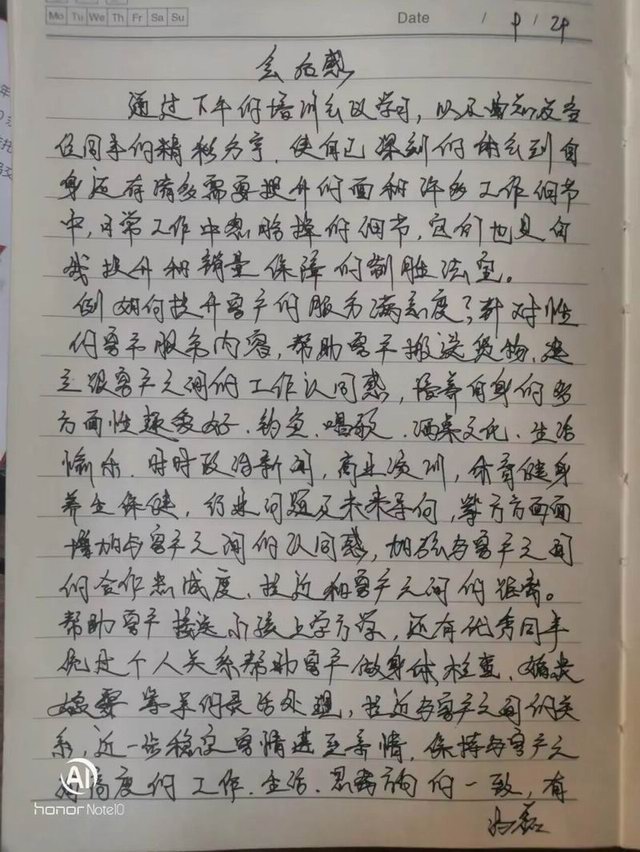 Mo Tu We Th Fr Sa Su
Date / 9 / 29
会后感
通过下午的培训会议学习，以及
位同事们精彩分享，使自己深刻的体会到自
身还存诸多需要提升的面和许多工作细节
中，日常工作中忽略掉的细节，它们也是自
我提升和销量保障的制胜法宝。
例如何提升客户的服务满意度？针对性
的客户服务内容，帮助客户搬运货物，建
立跟客户之间的工作认同感，培养自身的多
方面性趣爱好、钓鱼、唱歌、酒桌文化、生活
愉乐、时时政治新闻，商业演训，体育健身
养生保健，行业问题及未来导向，等方方面面
增加与客户之间的认同感，加强与客户之间
的合作忠诚度，拉近和客户之间的距离。
帮助客户接送小孩上学放学，还有优秀同事
个人关系帮助客户做身体检查、婚丧
嫁娶等等的灵活处理，拉近与客户之间的关
系，近一步稳定客情甚至亲情，保持与客户之
间高度的工作、生活、思路方向的一致，有
AI
honor Note10